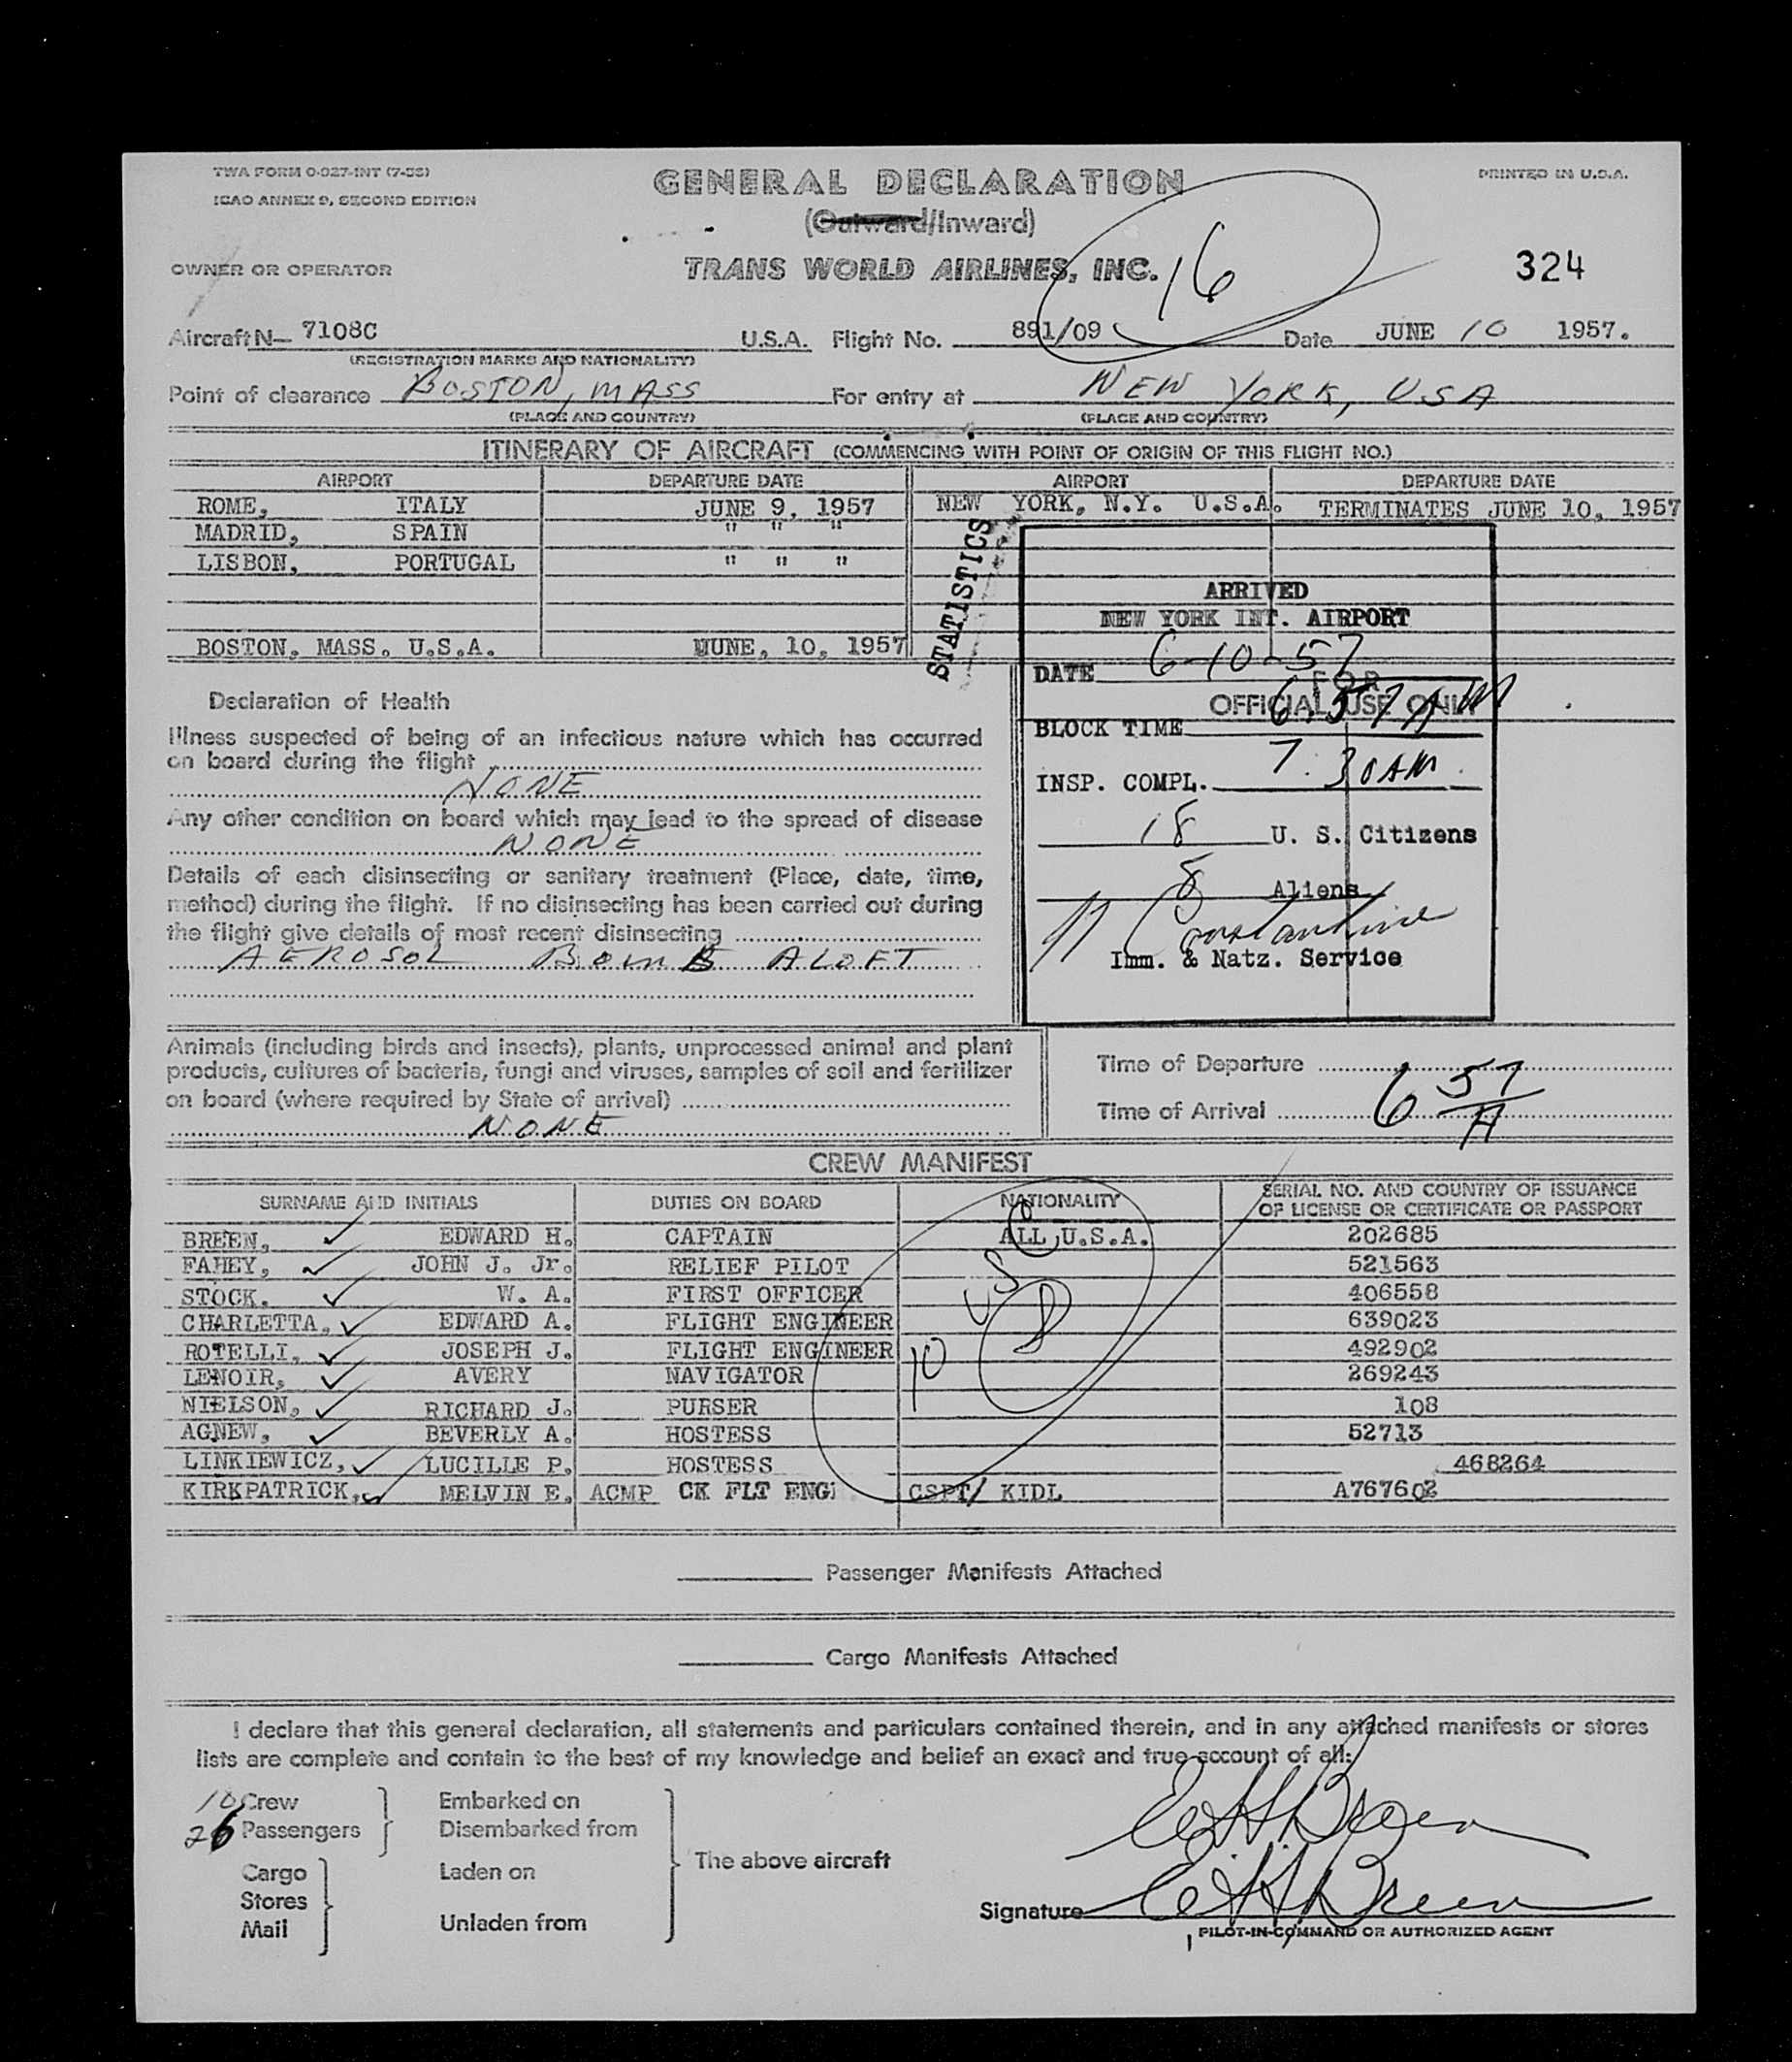 TWA FORM O-027-INT (7-55)
GENERAL DECLARATION
PRINTED IN U.S.A.
ICAO ANNEX 9, SECOND EDITION
(Outward/Inward)
OWNER OR OPERATOR
TRANS WORLD AIRLINES, INC.
16
324
Aircraft N— 7108C U.S.A. Flight No. 891/09 Date JUNE 10 1957.
(REGISTRATION MARKS AND NATIONALITY)
Point of clearance BOSTON, MASS For entry at NEW YORK, USA
(PLACE AND COUNTRY) (PLACE AND COUNTRY)
ITINERARY OF AIRCRAFT (COMMENCING WITH POINT OF ORIGIN OF THIS FLIGHT NO.)
AIRPORT DEPARTURE DATE AIRPORT DEPARTURE DATE
ROME, ITALY JUNE 9, 1957 NEW YORK, N.Y. U.S.A. TERMINATES JUNE 10, 1957
MADRID, SPAIN " " "
LISBON, PORTUGAL " " "
BOSTON, MASS. U.S.A. JUNE, 10, 1957
STATISTICS
ARRIVED
NEW YORK INT. AIRPORT
DATE 6-10-57
FOR
OFFICIAL USE ONLY
BLOCK TIME 6:57 AM
INSP. COMPL. 7:30 AM
18 U. S. Citizens
8 Aliens
Constantine
Imm. & Natz. Service
Declaration of Health
Illness suspected of being of an infectious nature which has occurred
on board during the flight
NONE
Any other condition on board which may lead to the spread of disease
NONE
Details of each disinsecting or sanitary treatment (Place, date, time,
method) during the flight. If no disinsecting has been carried out during
the flight give details of most recent disinsecting
AEROSOL BOMB ALOFT
Animals (including birds and insects), plants, unprocessed animal and plant
products, cultures of bacteria, fungi and viruses, samples of soil and fertilizer
on board (where required by State of arrival)
NONE
Time of Departure
Time of Arrival 6 57 A
CREW MANIFEST
SURNAME AND INITIALS DUTIES ON BOARD NATIONALITY SERIAL NO. AND COUNTRY OF ISSUANCE
OF LICENSE OR CERTIFICATE OR PASSPORT
BREEN, EDWARD H. CAPTAIN ALL U.S.A. 202685
FAHEY, JOHN J. Jr. RELIEF PILOT 521563
STOCK. W. A. FIRST OFFICER 406558
CHARLETTA, EDWARD A. FLIGHT ENGINEER 639023
ROTELLI, JOSEPH J. FLIGHT ENGINEER 492902
LENOIR, AVERY NAVIGATOR 269243
NIELSON, RICHARD J. PURSER 108
AGNEW, BEVERLY A. HOSTESS 52713
LINKIEWICZ, LUCILLE P. HOSTESS 468264
KIRKPATRICK, MELVIN E. ACMP CK FLT ENG CSPT/ KIDL A767602
10 US
Passenger Manifests Attached
Cargo Manifests Attached
I declare that this general declaration, all statements and particulars contained therein, and in any attached manifests or stores
lists are complete and contain to the best of my knowledge and belief an exact and true account of all:
10 Crew Embarked on
26 Passengers Disembarked from
The above aircraft
Cargo Laden on
Stores
Mail Unladen from
E H Breen
Signature E H Breen
PILOT-IN-COMMAND OR AUTHORIZED AGENT